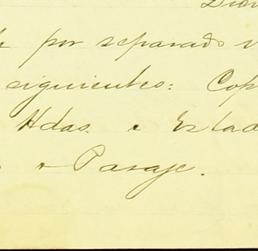 por separado
siguientes: Cop
Hdas. e Estad
Pasaje.